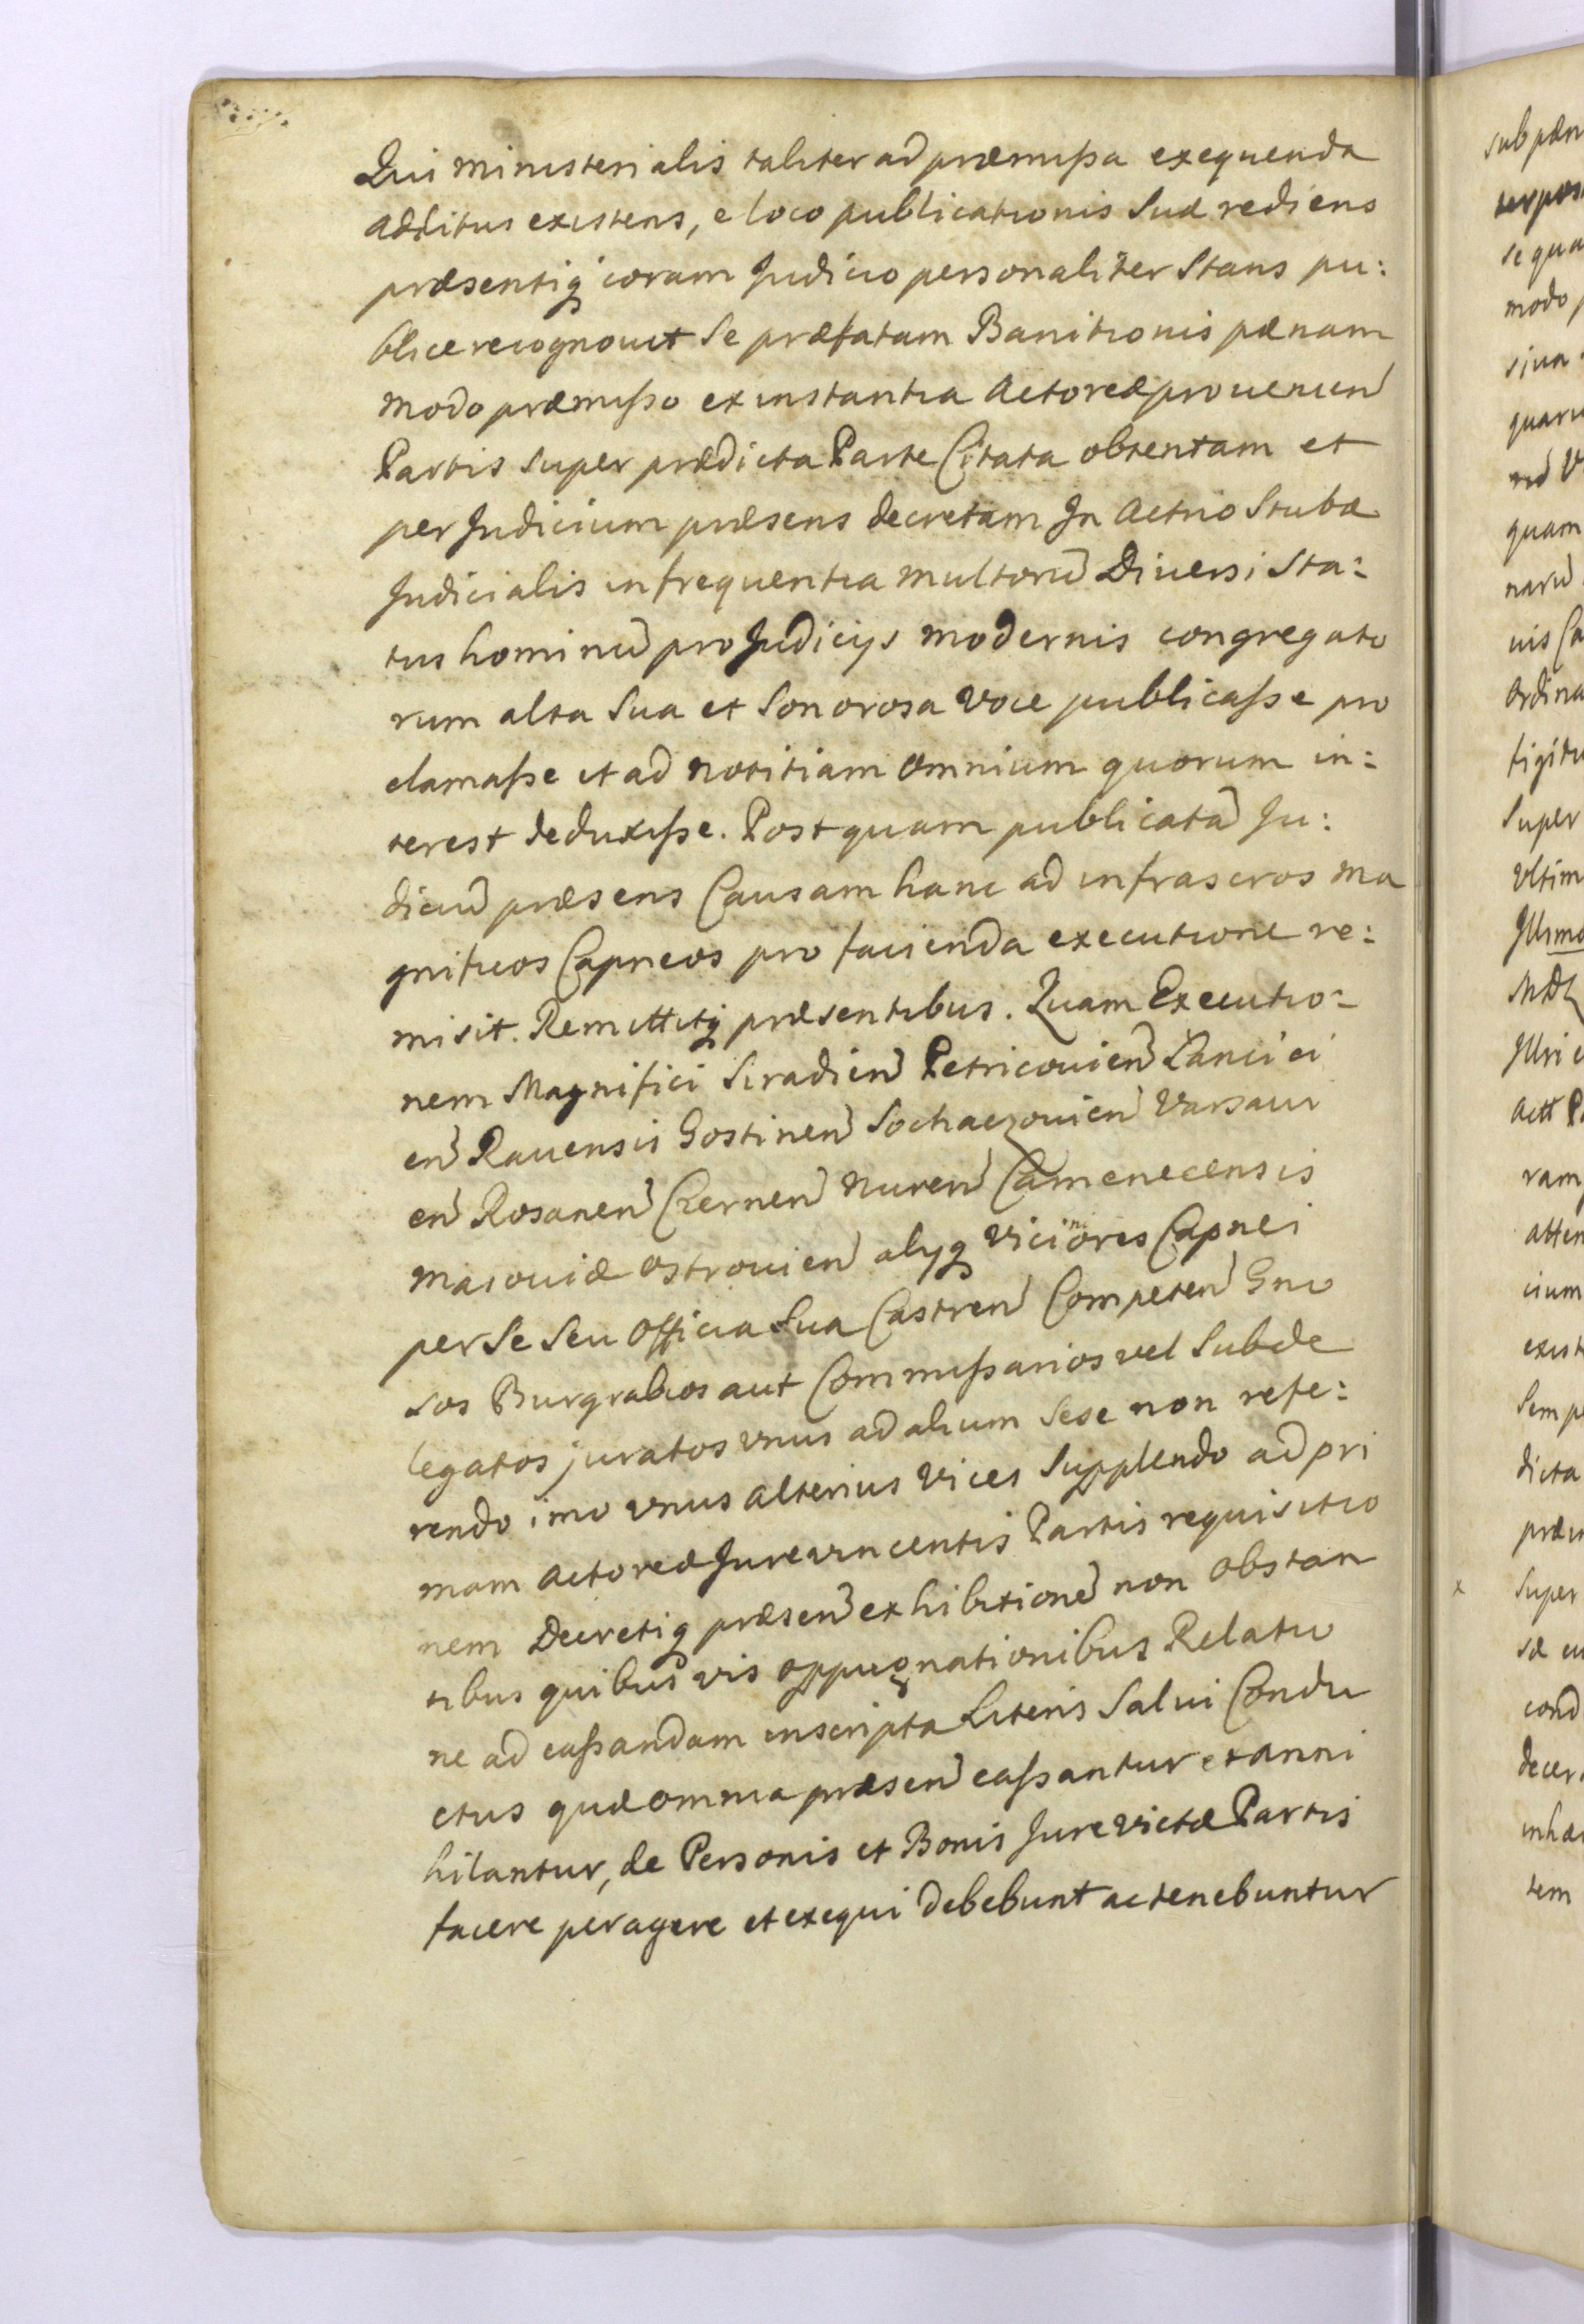 Qui ministerialis taliter ad præmissa exequenda
additus existens, e loco publicationis Suæ rediens
præsentiq coram Judicio personaliter Stans pu:
blice recognouit Se præfatam Banitionis pænam
modo præmisso ex instantia Actoreæ prouenien
Partis Super prædicta Parte Citata obtentam et
per Judicium præsens decretam In Actrio Stubæ
Judicialis in frequentia multorū Diuersi Sta:
tus hominū pro Judicijs modernis congregato
rum alta Sua et Sonorosa Voce publicasse pro
clamasse et ad notitiam omnium quorum in:
terest deduxisse. Post quam publicatā Ju:
diciū præsens Causam hanc ad infrascros Ma
gnificos Capneos pro facienda executione re:
misit. Remittitq præsentibus. Quam Executio:
nem Magnifici Siradien Petricouien Lancici
en Rauensis Gostinen Sochaczouien Varsaui
en Rosanen Czernen Nuren Camenecensis
Masouiæ Ostrouien alijq Viciniores Capnei
per Se Seu Officia Sua Castren Competen Gno
sos Burgrabios aut Commissarios vel Subde
legatos juratos vnus ad alium Sese non refe:
rendo imo vnus alterius Vices Supplendo ad pri
mam actoreæ Jurevincentis Partis requisitio
nem Decretiq præsen exhibitionē non obstan
tibus quibus vis oppugnationibus Relatio
ne ad cassandam inscripta Literis Salui Condu
ctus quæ omnia præsen cassantur et anni
hilantur, de Personis et Bonis Jure victæ Partis
facere peragere et exequi debebunt ac tenebuntur